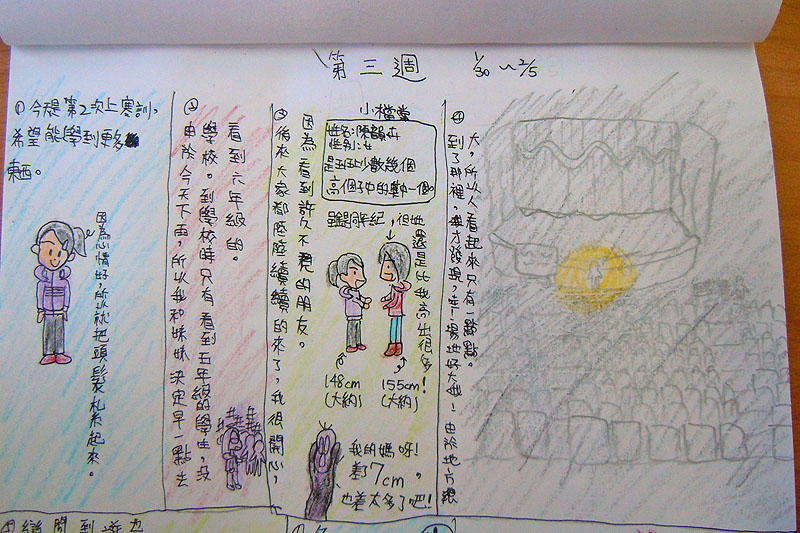 第三週
1/30 ~ 2/5
① 今是第2次上寒訓,
希望能學到更多
東西。
因為心情好,所以就把頭髮紮起來。
②
由於今天下雨,所以我和妹妹決定早一點去
學校。到學校時只有看到五年級的學生,沒
看到六年級的。
③
後來大家都陸陸續續的來了,我很開心,
因為看到許久不見的朋友。
小檔案
姓名:陳韻
性別:女
少數幾個
高個子中的其中一個。
雖是同年紀,但她
還是比我高出很多!
148cm
(大約)
155cm
(大約)
我的媽呀!
差7cm,
也差太多了吧!
④
到了那裡,我才發現,哇!場地好大哦!由於地方很
大,所以人看起來只有一點點。